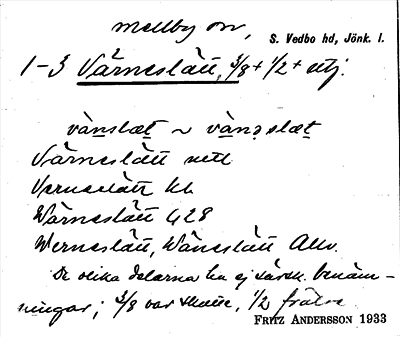 Mellby sn,
S. Vedbo hd, Jönk. l.
1-3 Värneslätt, 3/8 + 1/2 + utj.
vànslæt ~ vànəslæt
Värneslätt
Verneslätt kb
Wärneslätt 428
Werneslätt, Wäneslätt Allv.
De olika delarna ha ej särsk. benäm-
ningar; 3/8 var skatte, 1/2 frälse.
FRITZ ANDERSSON 1933